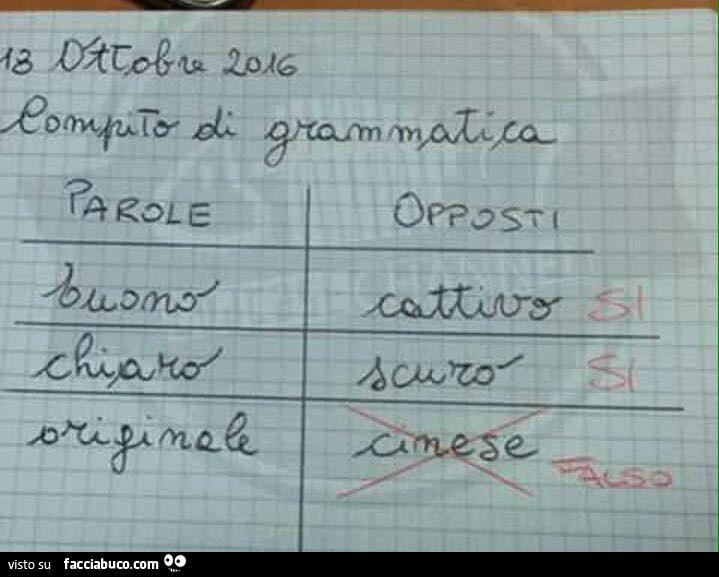 13 Ottobre 2016
Compito di grammatica
PAROLE OPPOSTI
buono cattivo SI
chiaro scuro SI
originale cinese FALSO
visto su facciabuco.com